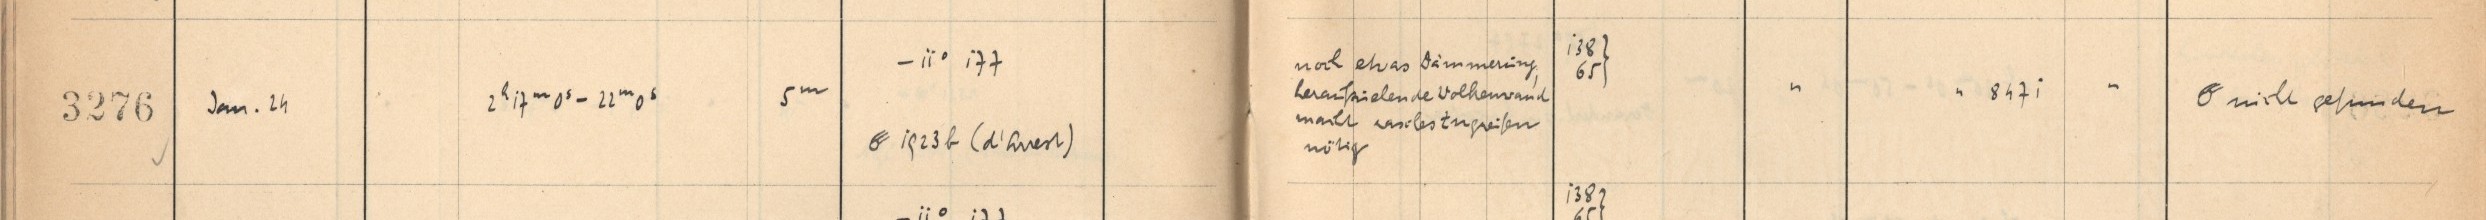 3276 Jan. 24 2h 17m 0s - 22m 0s 5m
-11° 177
☄ 1923b (d'Arrest)
noch etwas Dämmerung,
heraufziehende Wolkenwand
macht rasches Zugreifen
nötig
138}
65}
" " 8471 " ☄ nicht gefunden
-11° 177
138}
65}